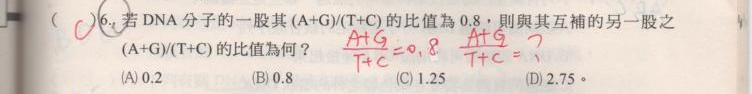 ( C )6. 若 DNA 分子的一股其 (A+G)/(T+C) 的比值為 0.8，則與其互補的另一股之
(A+G)/(T+C) 的比值為何？ A+G/T+C=0.8 A+G/T+C=?
(A) 0.2 (B) 0.8 (C) 1.25 (D) 2.75。